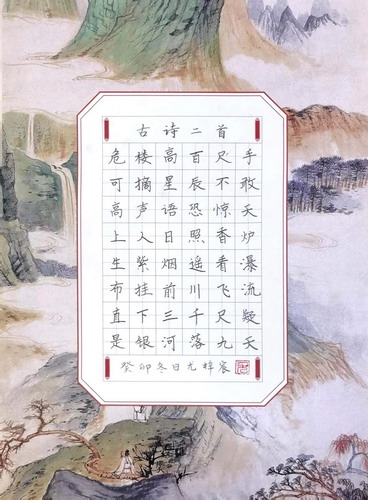 古诗二首
危楼高百尺手
可摘星辰不敢
高声语恐惊天
上人日照香炉
生紫烟遥看瀑
布挂前川飞流
直下三千尺疑
是银河落九天
癸卯冬日尤梓宸